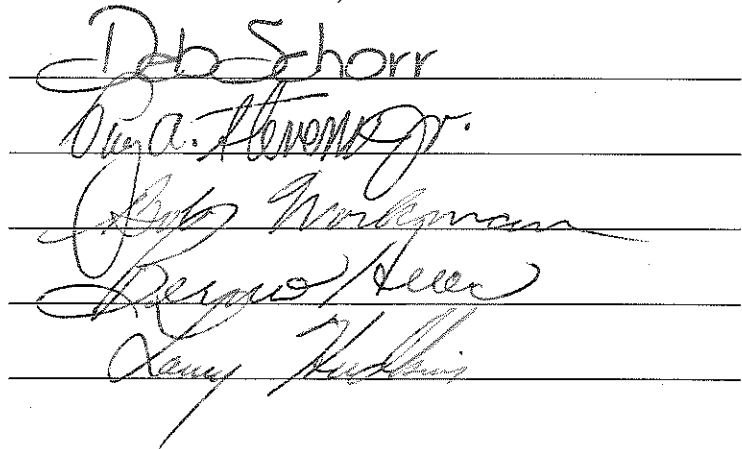 Deb Schorr
Ray A. Stevens Jr.
Bob Workman
Bernie Heier
Larry Hudkins